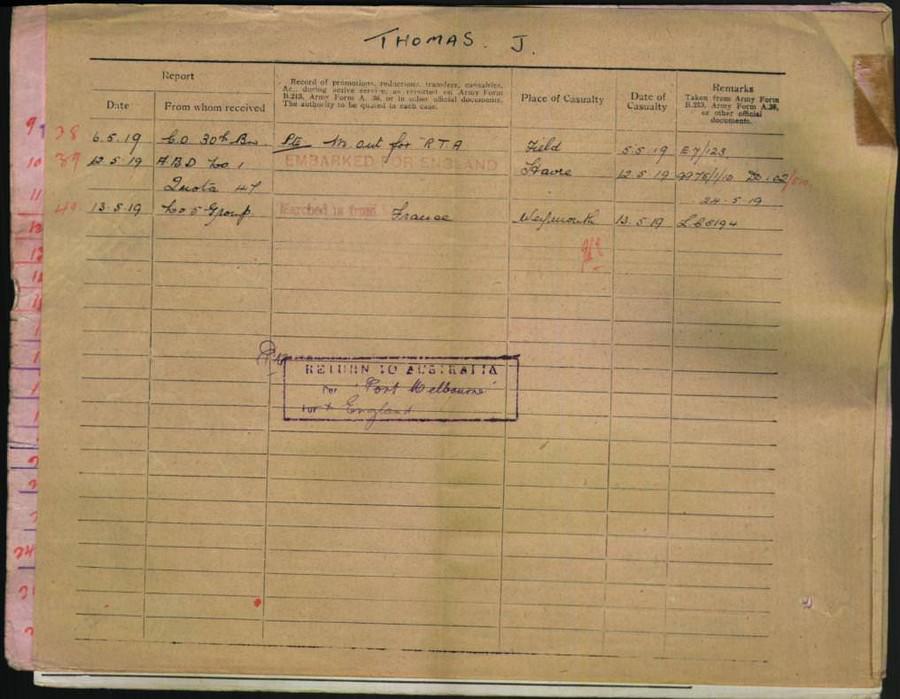 THOMAS. J.
Report
Record of promotions, reductions, transfers, casualties,
&c., during active service, as reported on Army Form
B.213, Army Form A. 36, or in other official documents.
The authority to be quoted in each case.
Place of Casualty
Date of
Casualty
Remarks
Taken from Army Form
B.213, Army Form A.36,
or other official
documents.
Date
From whom received
38 6.5.19 C.O 30th Bn Pte M out for RTA Field 5.5.19 E7/123
39 12.5.19 A.B.D No 1 EMBARKED FOR ENGLAND Havre 12.5.19
Quota 47
24.5.19
40 13.5.19 No 5 Group Marched in from France Weymouth 13.5.19
RETURN TO AUSTRALIA
Per 'Port Melbourne'
England